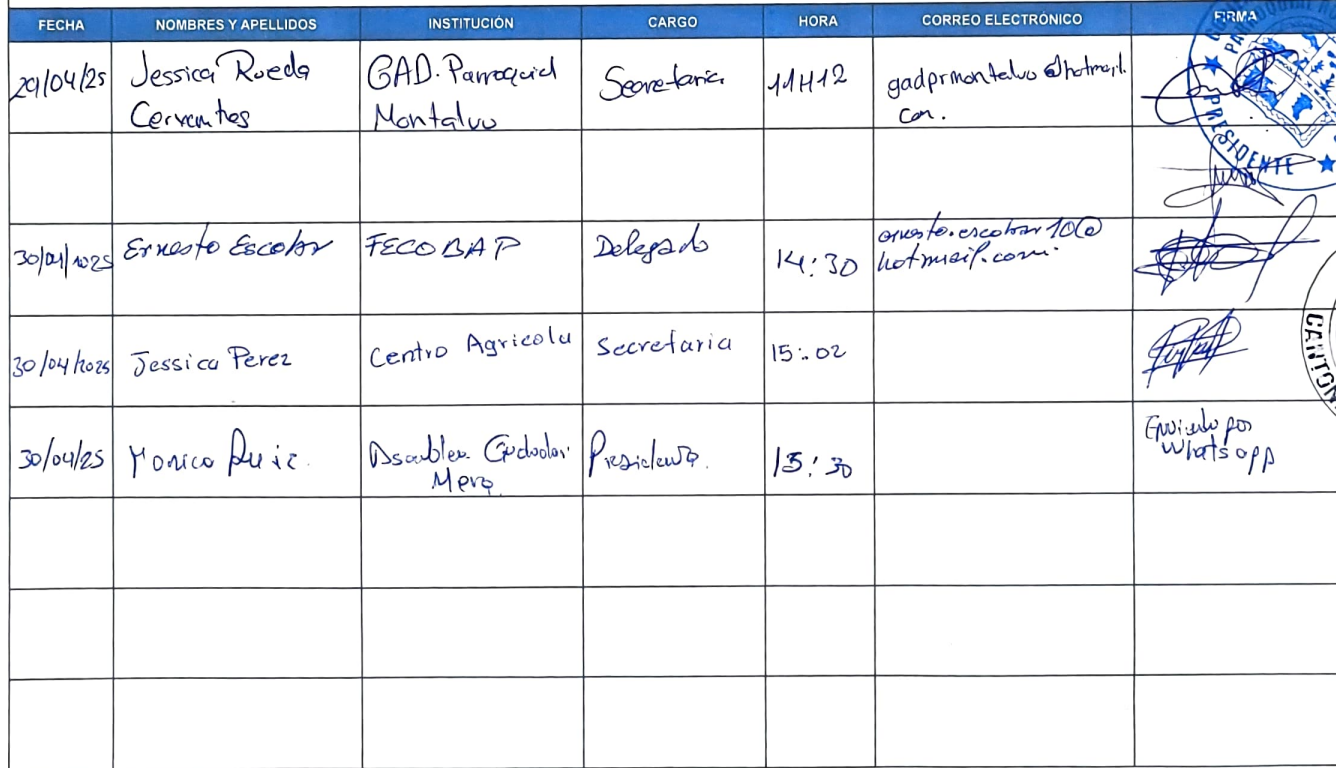 FECHA NOMBRES Y APELLIDOS INSTITUCIÓN CARGO HORA CORREO ELECTRÓNICO FIRMA
29/04/25 Jessica Rueda GAD. Parroquial Secretaria 11H12 gadprmontalvo@hotmail.
Cervantes Montalvo com.
PRESIDENTE
30/04/2025 Ernesto Escobar FECOBAP Delegado 14:30 ernesto.escobar10@
hotmail.com.
30/04/2025 Jessica Perez Centro Agricola Secretaria 15:02
CANTON
30/04/25 Monica Ruiz. Presidenta. 15:30 Enviado por
Mera Whatsapp